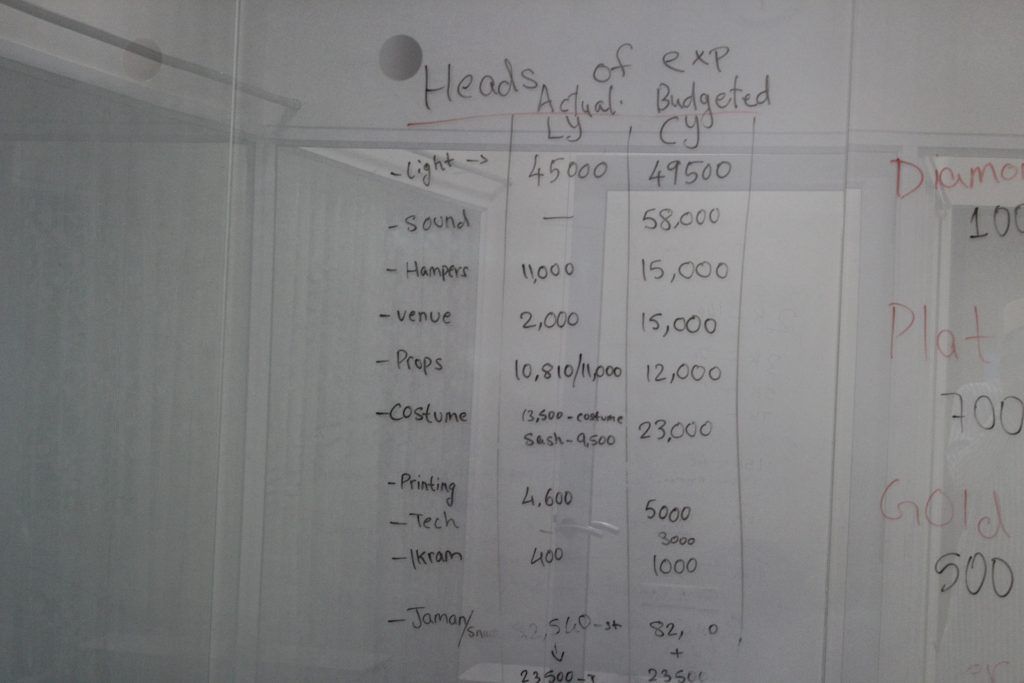 Heads of exp
Actual. Budgeted
LY CY
- Light → 45000 49500
- Sound — 58,000
- Hampers 11,000 15,000
- venue 2,000 15,000
- Props 10,810/11,000 12,000
- Costume 13,500 - costume
Sash - 9,500 23,000
- Printing 4,600 5000
- Tech - 3000
- Ikram 400 1000
- Jaman/
↓ +
Diamo
100
Plat
700
Gold
500